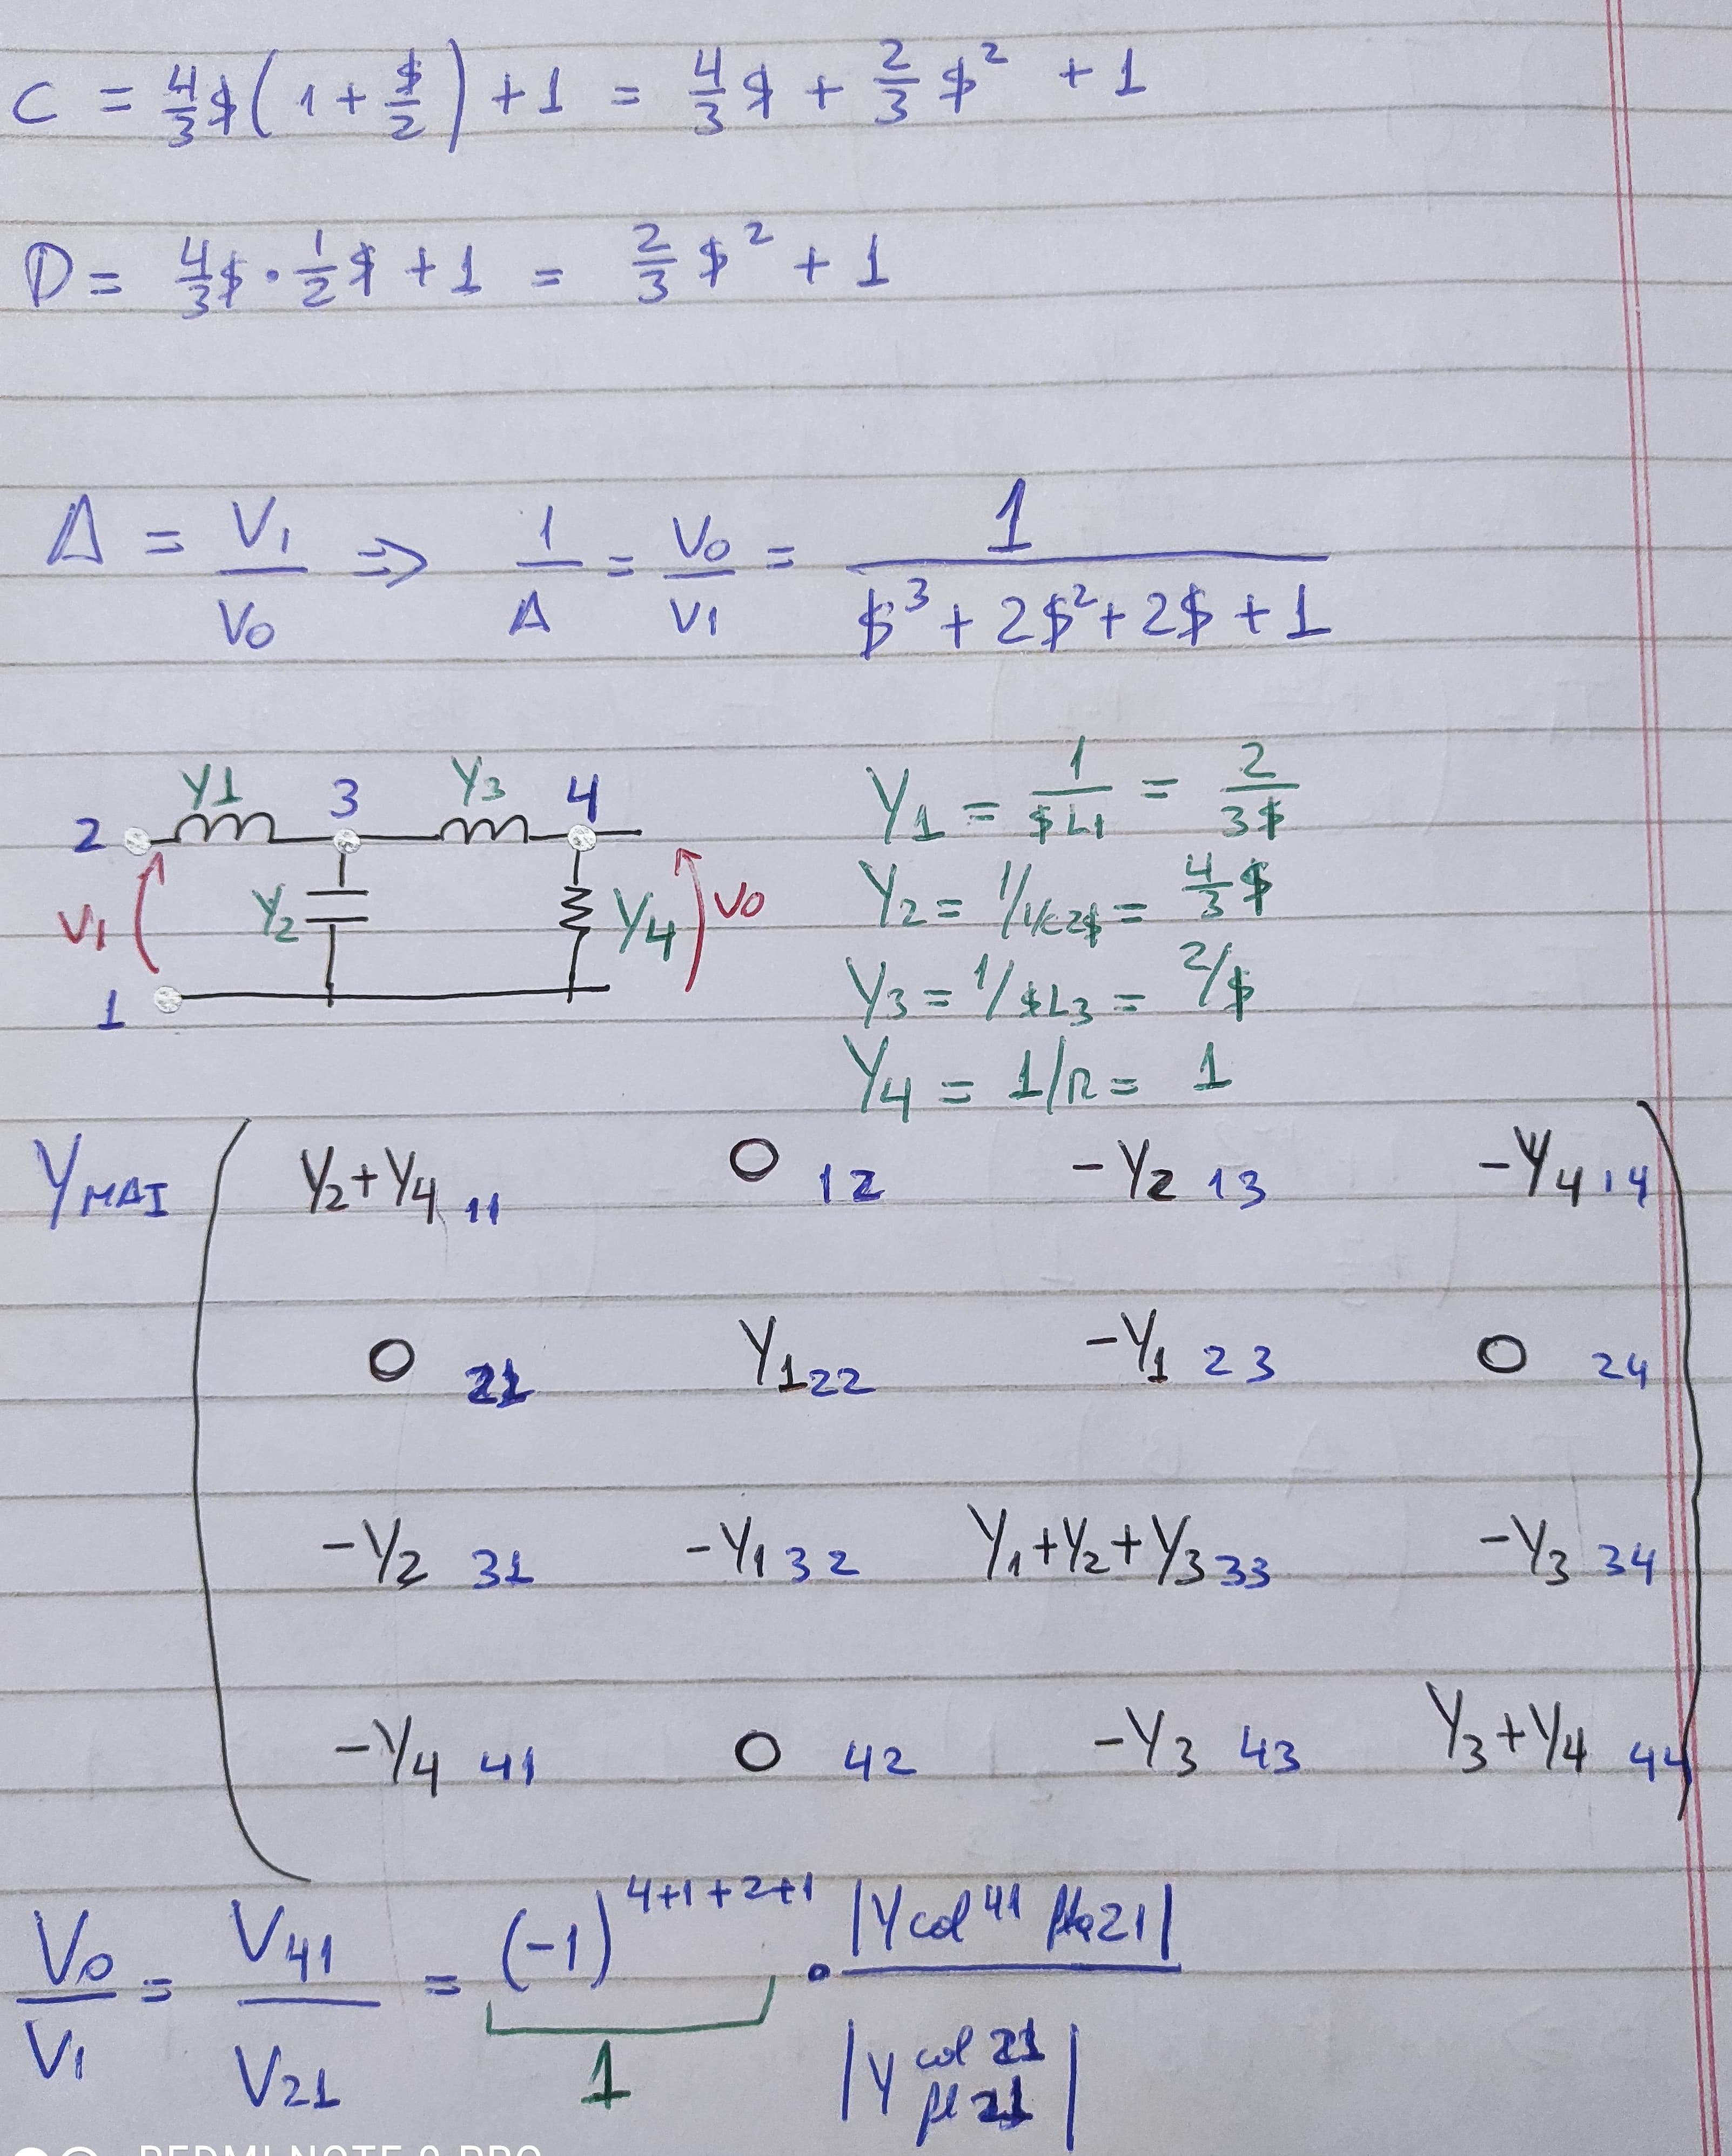 C = 4/3 $ ( 1 + $/2 ) + 1 = 4/3 $ + 2/3 $² + 1
D = 4/3 $ · 1/2 $ + 1 = 2/3 $² + 1
A = V1/V0 ⇒ 1/A = V0/V1 = 1/($³ + 2$² + 2$ + 1)
Y1 Y3
2 3 4
V1 Y2 Y4 V0
1
Y1 = 1/$L1 = 2/3$
Y2 = 1/1/C2$ = 4/3 $
Y3 = 1/$L3 = 2/$
Y4 = 1/R = 1
YMAI
Y2+Y4 11 0 12 -Y2 13 -Y4 14
0 21 Y1 22 -Y1 23 0 24
-Y2 31 -Y1 32 Y1+Y2+Y3 33 -Y3 34
-Y4 41 0 42 -Y3 43 Y3+Y4 44
V0/V1 = V41/V21 = (-1)^4+1+2+1 · |Y col 41 21| / |Y col 21 21|
1
REDMI NOTE 9 PRO